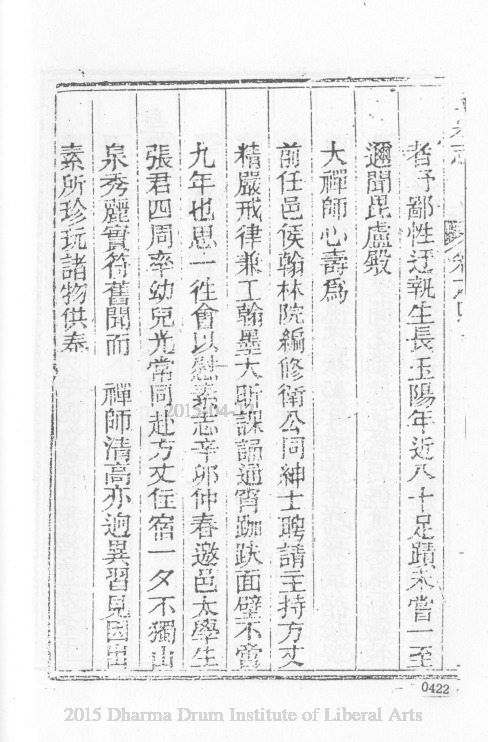 者乎鄙性迂執生長玉陽年近八十足蹟未嘗一至
邇聞毘盧殿
大禪師心壽為
前任邑侯翰林院編修衛公同紳士聘請主持方丈
精嚴戒律兼工翰墨大昕課誦通宵跏趺面壁不啻
九年也思一徃會以慰素志辛卯仲春邀邑太學生
張君四周率幼兒光常同赴方丈住宿一夕不獨山
泉秀麗實符舊聞而 禪師清高亦迥異習見因出
素所珍玩諸物供奉
0422
2015 Dharma Drum Institute of Liberal Arts